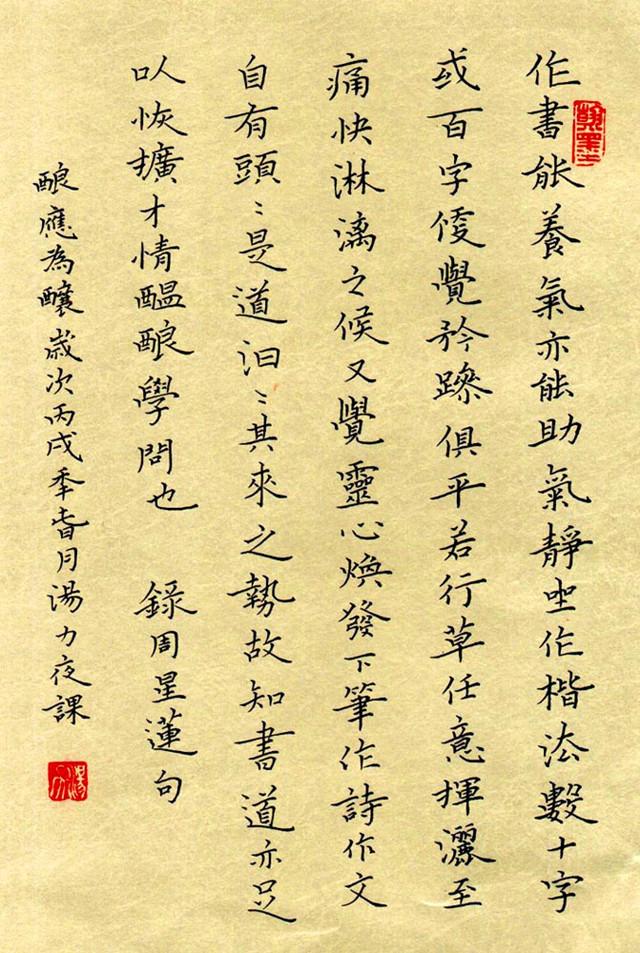 作書能養氣亦能助氣靜坐作楷法數十字
或百字便覺矜躁俱平若行草任意揮灑至
痛快淋漓之候又覺靈心煥發下筆作詩作文
自有頭〻是道汩〻其來之勢故知書道亦足
以恢擴才情醖酿學問也 錄周星蓮句
酿應為釀歲次丙戌秊旾月湯力夜課
湯力